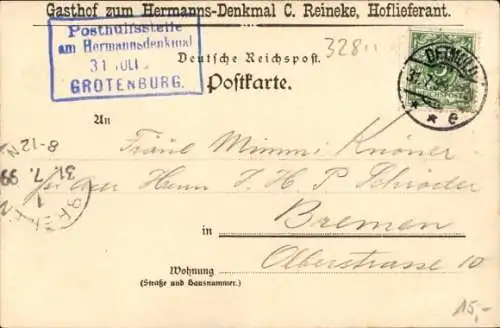 Gasthof zum Hermanns-Denkmal C. Reineke, Hoflieferant.
Posthülfsstelle
am Hermannsdenkmal
31 JULI
GROTENBURG.
328
DETMOLD
* * e
Deutsche Reichspost.
Postkarte.
An
Fräul. Mimmi Knöner
8-12 N
31. 7. 99
1
BREMEN
Herrn J. H. P. Schröder
Bremen
in
Olberstrasse 10
Wohnung
(Straße und Hausnummer.)
15,-